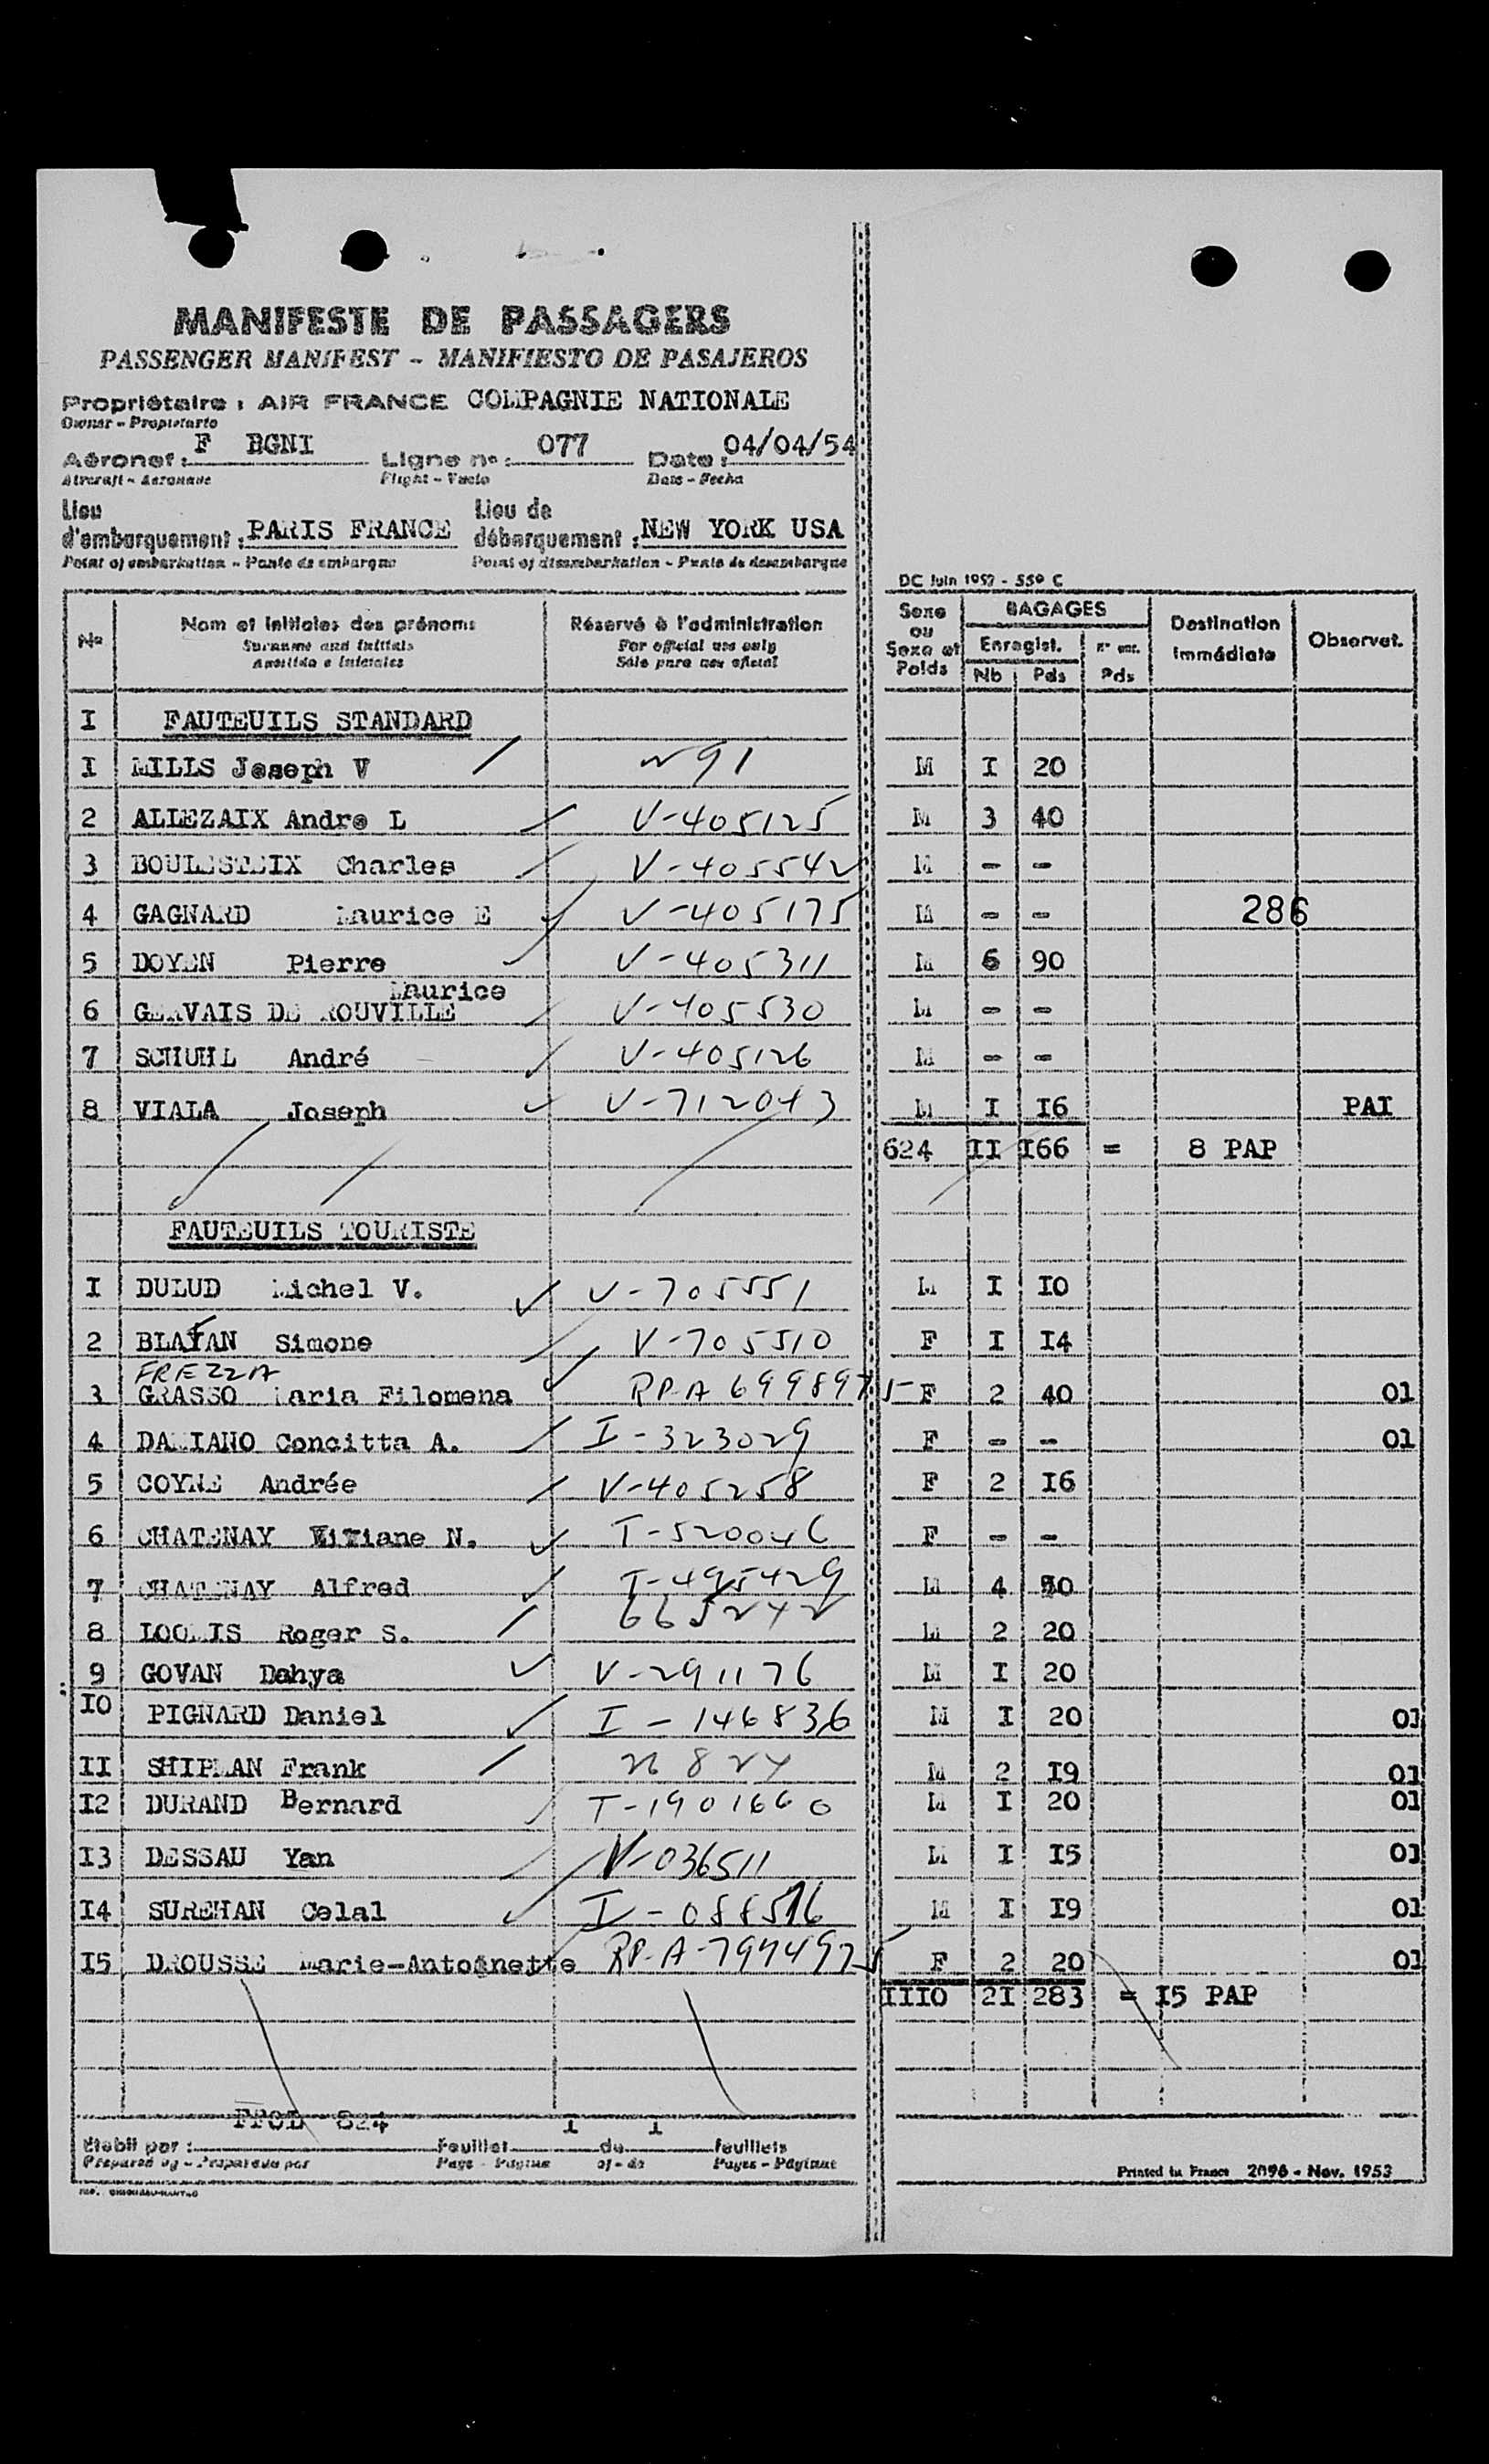 MANIFESTE DE PASSAGERS
PASSENGER MANIFEST - MANIFIESTO DE PASAJEROS
Propriétaire : AIR FRANCE COMPAGNIE NATIONALE
Owner - Propietario
Aéronef : F BGNI Ligne n° : 077 Date : 04/04/54
Aircraft - Aeronave Flight - Vuelo Date - Fecha
Lieu d'embarquement : PARIS FRANCE Lieu de débarquement : NEW YORK USA
Point of embarkation - Punto de embarque Point of disembarkation - Punto de desembarque
DC Juin 1952 - 550 C
N° Nom et initiales des prénoms Réservé à l'administration Sexe ou Sexe et Poids BAGAGES Destination immédiate Observat.
Surname and initials For official use only Enregist. N° enr.
Apellido e iniciales Sólo para uso oficial Nb Pds Pds
I FAUTEUILS STANDARD
I MILLS Joseph V 91 M I 20
2 ALLEZAIX Andre L V-405125 M 3 40
3 BOULESTEIX Charles V-405542 M - -
4 GAGNARD Maurice E V-405175 M - - 286
5 DOYEN Pierre V-405311 M 6 90
6 GERVAIS DE ROUVILLE Maurice V-405530 M - -
7 SCHUHL André V-405126 M - -
8 VIALA Joseph V-712043 M I I6 PAI
624 II I66 = 8 PAP
FAUTEUILS TOURISTE
I DULUD Michel V. V-705551 M I IO
2 BLAYAN Simone V-705510 F I I4
FREZZA
3 GRASSO Maria Filomena RP-A 6998975 F 2 40 01
4 DAMIANO Concitta A. I-323029 F - - 01
5 COYNE Andrée V-405258 F 2 I6
6 CHATENAY Viviane N. T-520046 F - -
7 CHATENAY Alfred T-495429 M 4 50
8 LOOMIS Roger S. 665242 M 2 20
9 GOVAN Dahya V-291176 M I 20
IO PIGNARD Daniel I-146836 M I 20 01
II SHIPMAN Frank 26824 M 2 I9 01
I2 DURAND Bernard T-1901660 M I 20 01
I3 DESSAU Yan V-036511 M I I5 01
I4 SUREHAN Celal I-088516 M I I9 01
I5 DROUSSE Marie-Antoinette RP-A-7974975 F 2 20 01
IIIO 2I 283 = I5 PAP
824 I I
Etabli par : Feuillet de feuillets
Prepared by - Preparado por Page - Página of - de Pages - Páginas
Printed in France 2096 - Nov. 1953